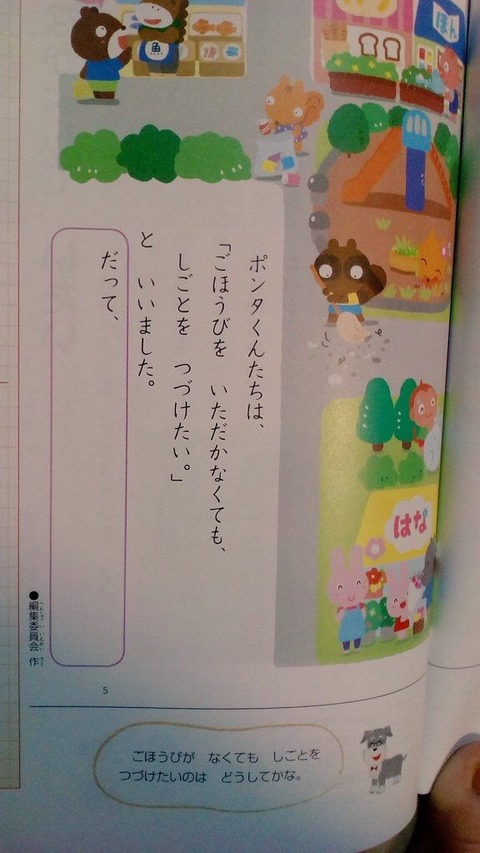 魚
ほん
はな
ポンタくんたちは、
「ごほうびを　いただかなくても、
しごとを　つづけたい。」
と　いいました。
だって、
●編集委員会　作
へんしゅういいんかい　さく
5
ごほうびが　なくても　しごとを
つづけたいのは　どうしてかな。